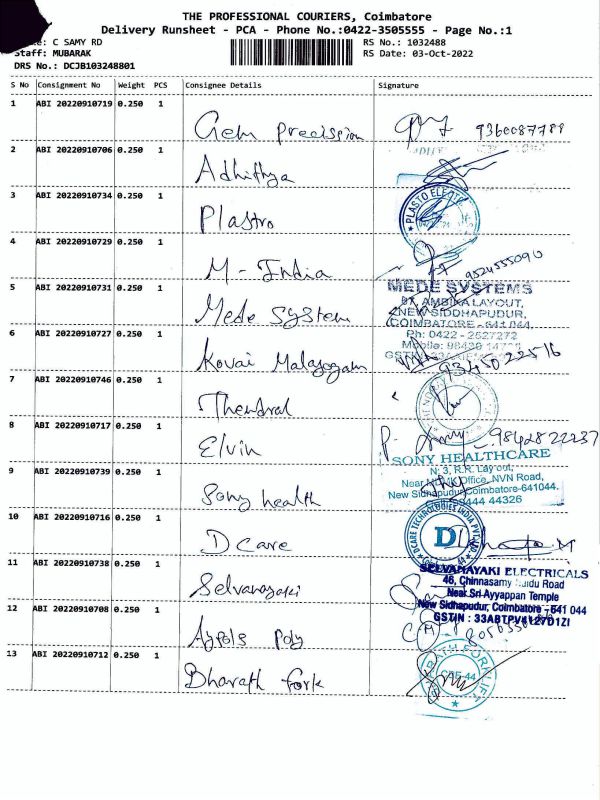 THE PROFESSIONAL COURIERS, Coimbatore
Delivery Runsheet - PCA - Phone No.:0422-3505555 - Page No.:1
C SAMY RD
RS No.: 1032488
Staff: MUBARAK
RS Date: 03-Oct-2022
DRS No.: DCJB103248801
S No Consignment No Weight PCS Consignee Details Signature
1 ABI 20220910719 0.250 1 Gem Precission
2 ABI 20220910706 0.250 1 Adhithya
3 ABI 20220910734 0.250 1 Plastro
PLASTO ELECTR
4 ABI 20220910729 0.250 1 M-India
9524555090
5 ABI 20220910731 0.250 1 Mede System
MEDE SYSTEMS
97, AMBIKA LAYOUT,
NEW SIDDHAPUDUR,
COIMBATORE - 641 044.
Ph: 0422 - 2527272
6 ABI 20220910727 0.250 1 Kovai Malayogam
9345022576
7 ABI 20220910746 0.250 1 Thendral
8 ABI 20220910717 0.250 1 Elvin
9842822237
9 ABI 20220910739 0.250 1 Sony health
SONY HEALTHCARE
N: 3, R.R. Layout,
Office, NVN Road,
New Sidhapudur, Coimbatore-641044.
9444 44326
10 ABI 20220910716 0.250 1 D care
DCARE TECHNOLOGIES INDIA PVT LTD
D
11 ABI 20220910738 0.250 1 Selvanayaki
SELVANAYAKI ELECTRICALS
46, Chinnasamy Naidu Road
Near Sri Ayyappan Temple
New Sidhapudur, Coimbatore - 641 044
GSTIN : 33ABTPV4127D1ZI
12 ABI 20220910708 0.250 1 Poly
13 ABI 20220910712 0.250 1 Bharath fork
BHARATH FORKLIFT
CBE-44